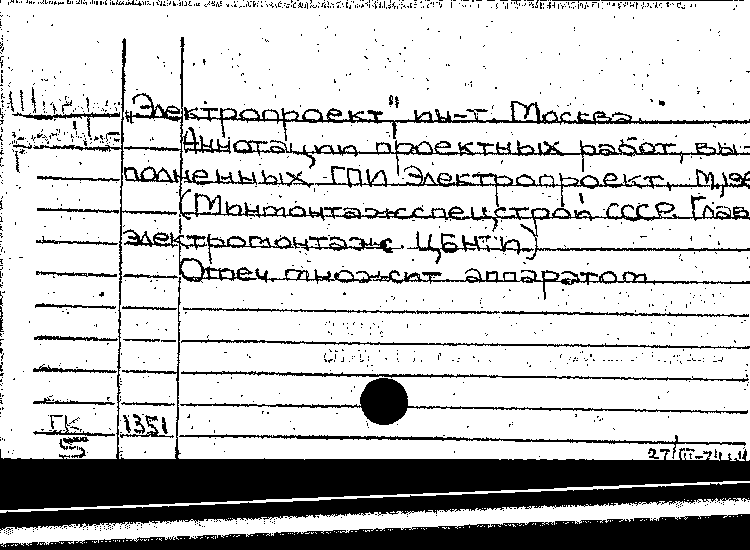 „Электропроект" ин-т. Москва.
Аннотации проектных работ, вы-
полненных ГПИ Электропроект. М.,196
(Минмонтажспецстрой СССР. Глав
электромонтаж ЦБНТИ)
Отпеч. множит. аппаратом
ГК 1351
5